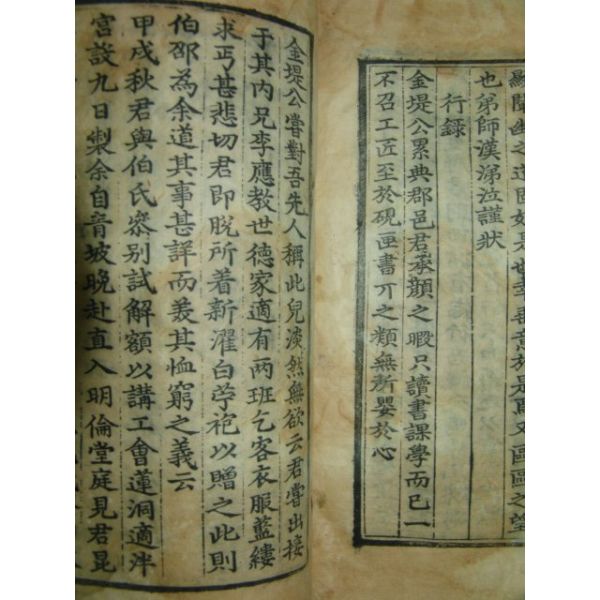 之道固如是也幸垂意於是焉又區區之望
也弟師漢涕泣謹狀
行錄
金堤公累典郡邑君承顏之暇只讀書課學而已一
不召工匠至於硯匣書丌之類無所嬰於心
金堤公嘗對吾先人稱此兒淡然無欲云君嘗出接
于其內兄李應教世德家適有兩班乞客衣服藍縷
求丐甚悲切君即脫所着新濯白苧袍以贈之此則
伯邵為余道其事甚詳而羙其恤窮之義云
甲戌秋君與伯氏叅別試解額以講工會蓮洞適泮
宮設九日製余自青坡晚赴直入明倫堂庭見君昆